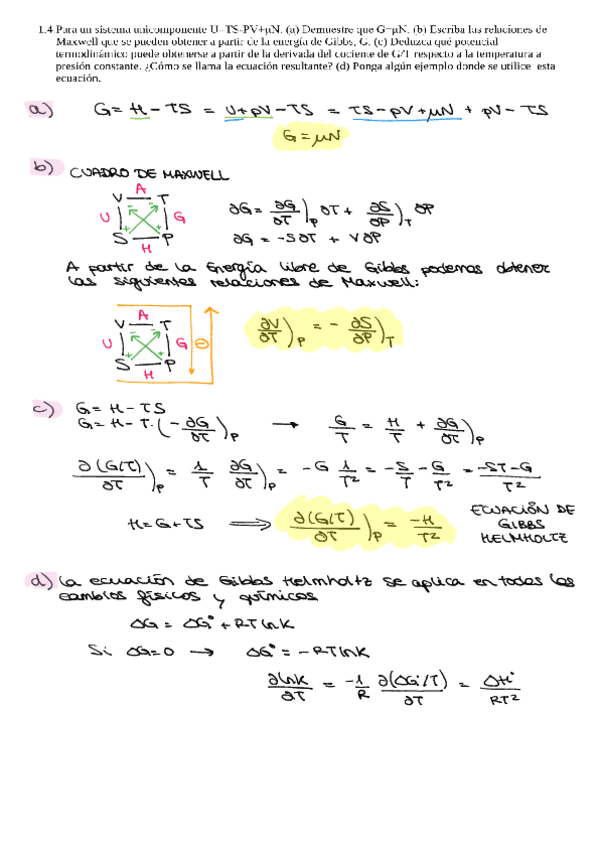 1.4 Para un sistema unicomponente U=TS-PV+μN. (a) Demuestre que G=μN. (b) Escriba las relaciones de
Maxwell que se pueden obtener a partir de la energía de Gibbs, G. (c) Deduzca qué potencial
termodinámico puede obtenerse a partir de la derivada del cociente de G/T respecto a la temperatura a
presión constante. ¿Cómo se llama la ecuación resultante? (d) Ponga algún ejemplo donde se utilice esta
ecuación.
a) G = H - TS = U + pV - TS = TS - pV + μN + pV - TS
G = μN
b) CUADRO DE MAXWELL
A
V T
U G
S P
H
∂G = ∂G/∂T)P ∂T + ∂S/∂P)T ∂P
∂G = -S∂T + V∂P
A partir de la Energía libre de Gibbs podemos obtener
las siguientes relaciones de Maxwell:
A
V T
U G ⊖
S P
H
∂V/∂T)P = - ∂S/∂P)T
c) G = H - TS
G = H - T·(-∂G/∂T)P → G/T = H/T + ∂G/∂T)P
∂(G/T)/∂T)P = 1/T ∂G/∂T)P = -G 1/T² = -S/T - G/T² = -ST-G/T²
H = G + TS ⟹ ∂(G/T)/∂T)P = -H/T²
ECUACIÓN DE
GIBBS
HELMHOLTZ
d) La ecuación de Gibbs Helmholtz se aplica en todos los
cambios físicos y químicos
ΔG = ΔG° + RT lnK
Si ΔG=0 → ΔG° = -RT lnK
∂lnK/∂T = -1/R ∂(ΔG°/T)/∂T = ΔH°/RT²